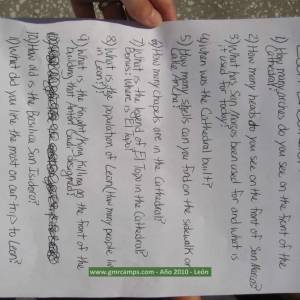 1) How many arches do you see on the front of the
Cathedral?
2) How many heads do you see on the front of San Marcos?
3) What has San Marcos been used for and what is
it used for today?
4) When was the Cathedral built?
5) How many shells can you find on the sidewalk or
Calle Ancha?
6) How many chapels are in the Cathedral?
7) What is the legend of El Topo in the Cathedral?
Bonus: Where is El Topo?
8) What is the population of León (How many people live
in León)?
9) What is the Knight/King Killing on the front of the
building that Antoni Gaudí designed?
10) How old is the Basilica San Isidoro?
11) What do you like the most on our trip to León?
www.gmrcamps.com - Año 2010 - León